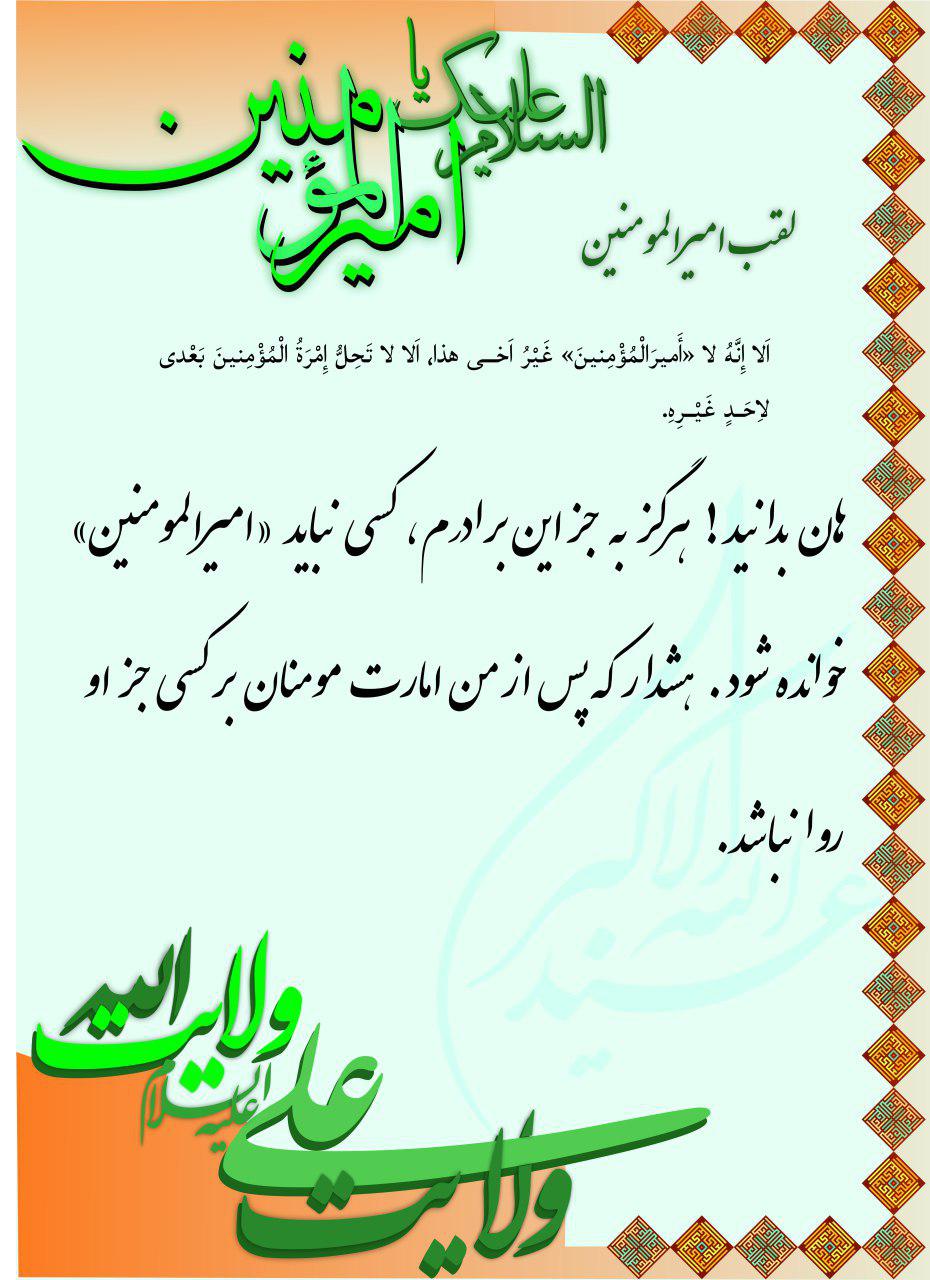 السلام علیک یا
امیرالمؤمنین
لقب امیرالمومنین
اَلا إِنَّهُ لا «أَمیرَالْمُؤْمِنینَ» غَیْرُ اَخـی هذا، اَلا لا تَحِلُّ إِمْرَةُ الْمُؤْمِنینَ بَعْدی
لاِحَـدٍ غَیْـرِهِ.
هان بدانید! هرگز به جز این برادرم، کسی نباید «امیرالمومنین»
خوانده شود. هشدار که پس از من امارت مومنان بر کسی جز او
روا نباشد.
عید الله الاکبر
ولایت الله
ولایت علی علیه السلام